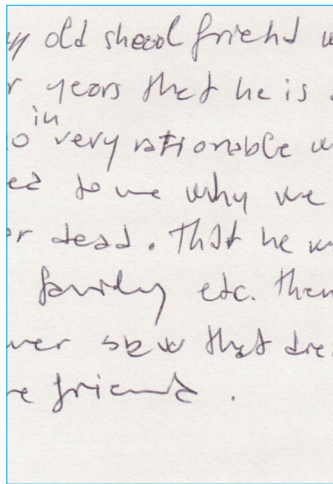 y old shool friend w
r years that he is
in
o very rationable w
ed to me why we
or dead. That he w
family etc. Then
ver saw that dre
e friend.